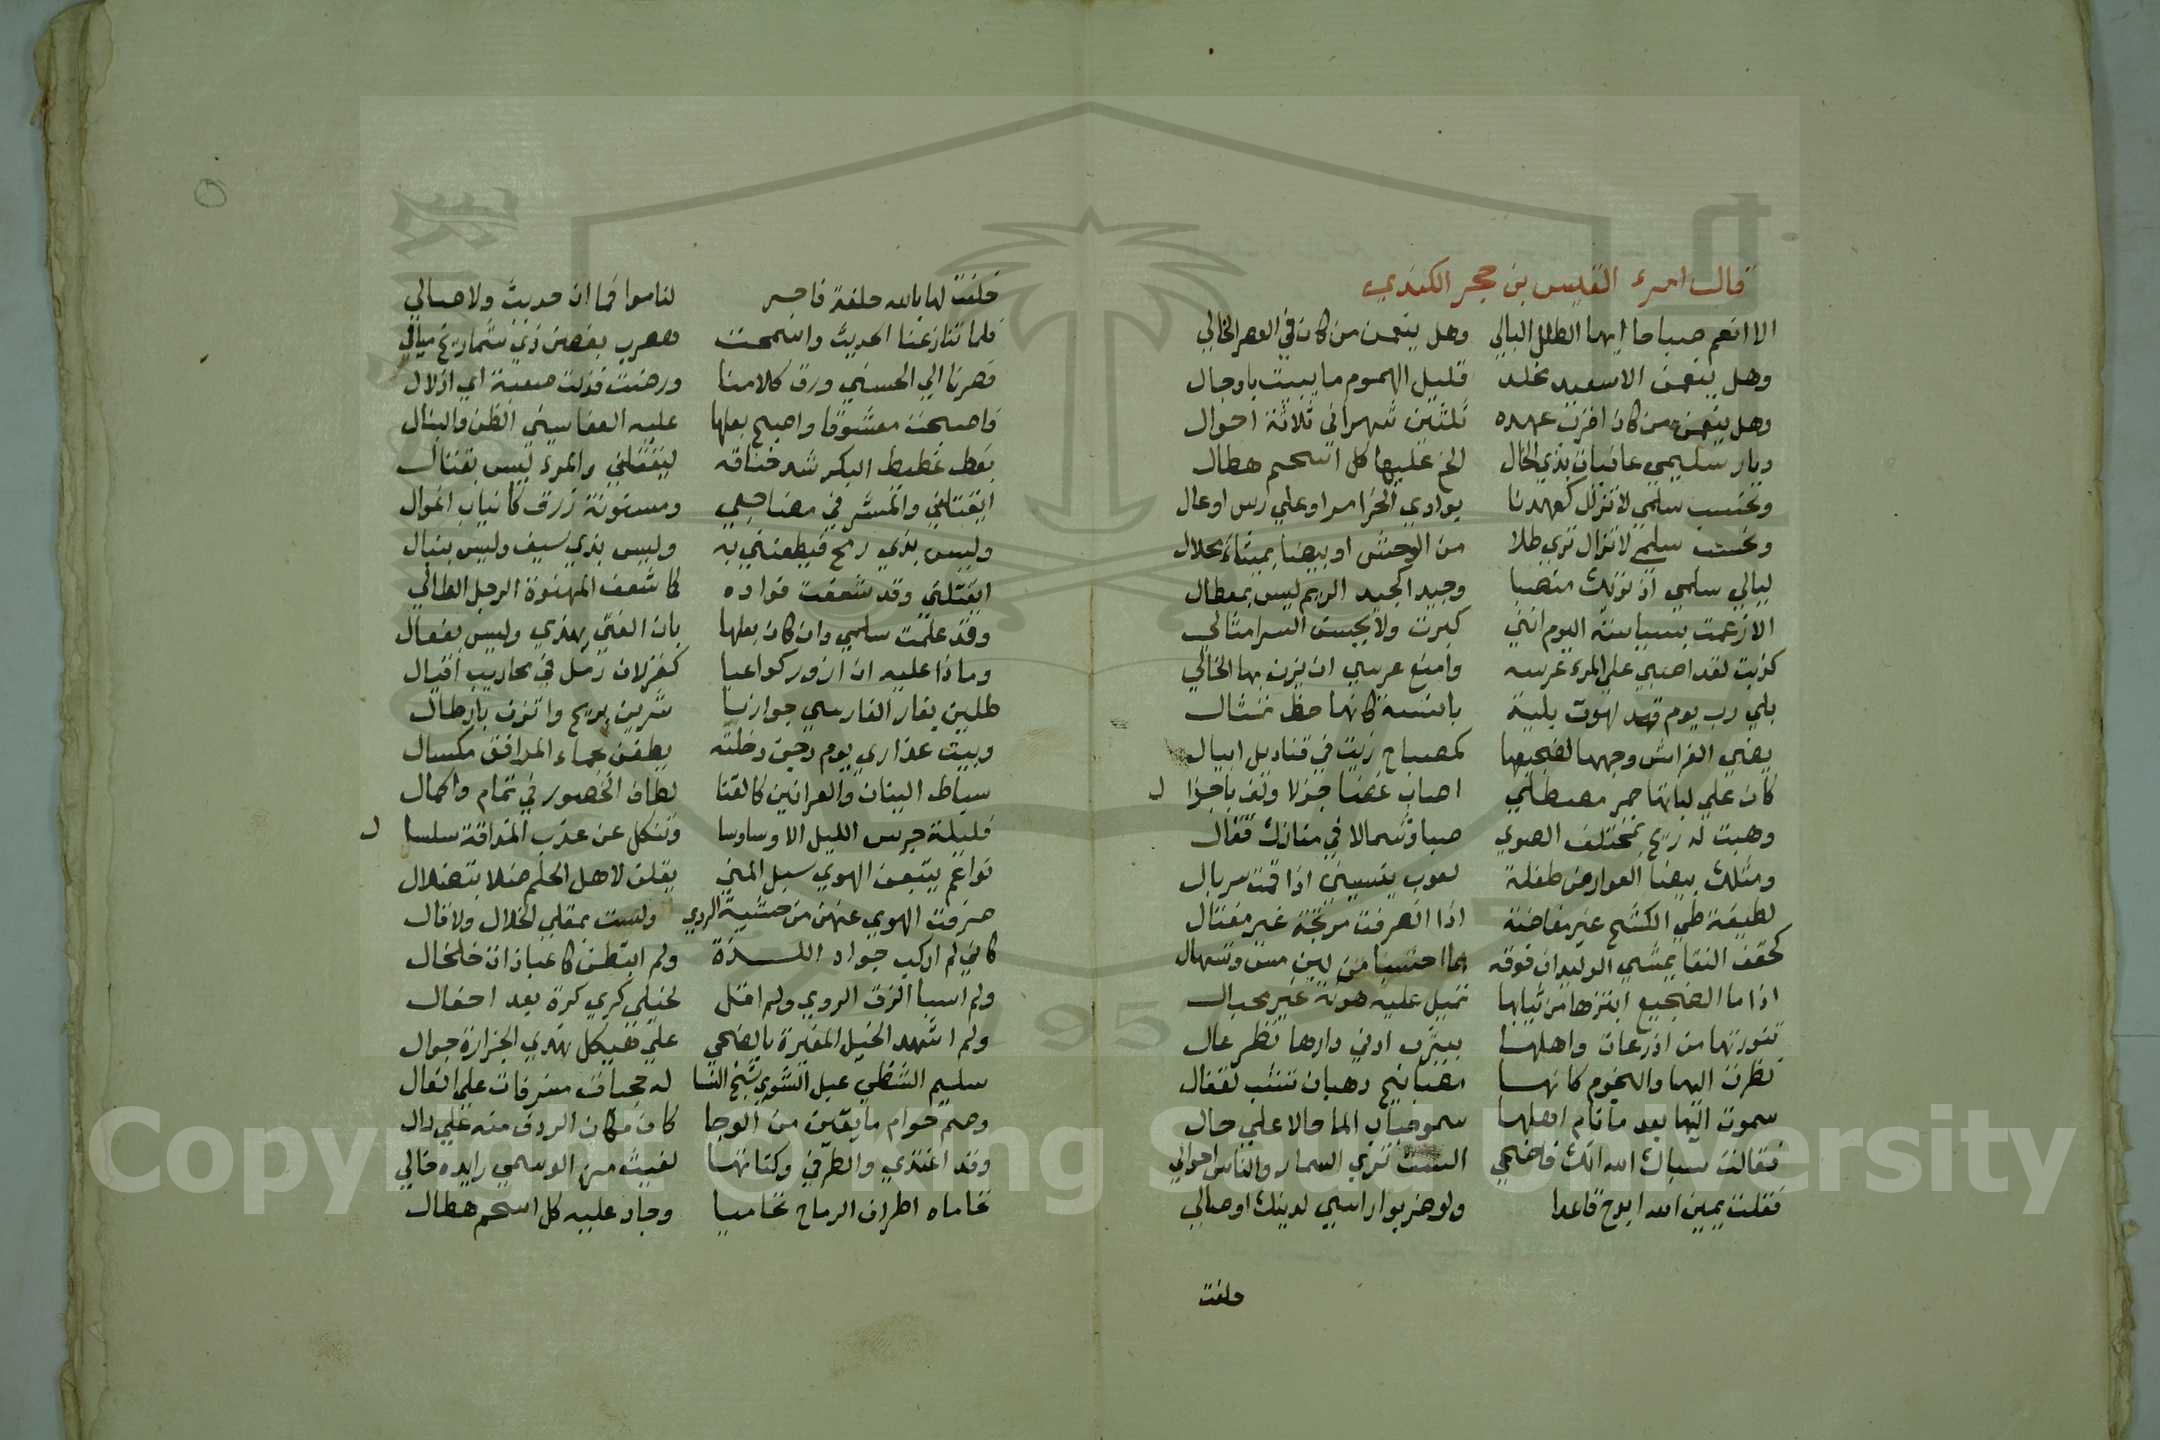 قال امرء القيس بن حجر الكندي
الا انعم صباحا ايها الطلل البالي وهل ينعمن من كان في العصر الخالي
وهل ينعمن الا سعيد مخلد قليل الهموم ما يبيت باوجال
وهل ينعمن من كان اخرت عهده ثلثين شهرا في ثلاثة احوال
ديار سليمي عافيات بذي الخال الح عليها كل اسحم هطال
وتحسب سلمي لا تزال كعهدنا بوادي الخزاما او علي رس اوعال
وتحسب سلمي لا تزال تري طلا من الوحش او بيضا بميثاء محلال
ليالي سلمي اذ تريك منصبا وجيدا كجيد الريم ليس بمعطال
الا زعمت بسباسة اليوم انني كبرت ولا يحسن السر امثالي
كذبت لقد اصبي علي المرء عرسه وامنع عرسي ان يزن بها الخالي
بلي رب يوم قد لهوت بليلة بانسة كانها خط تمثال
يضي الفراش وجهها لضجيعها كمصباح زيت في قناديل ابيال
كان علي لباتها جمر مصطلي اصاب غضا جزلا وكف باجزا ل
وهبت له ريح بمختلف الصوي صبا وشمالا في منازل قفال
ومثلك بيضا العوارض طفلة لعوب ينسيني اذا قمت سربال
لطيفة طي الكشح غير مفاضة اذا انصرفت مرتجة غير مفتال
كحقف النقا يمشي الوليدان فوقه بما احتسبا من لين مس وتسهال
اذا ما الضجيع ابتزها من ثيابها تميل عليه هونة غير مجبال
تنورتها من اذرعات واهلها بيثرب ادني دارها نظر عال
نظرت اليها والنجوم كانها مصابيح رهبان تشب لقفال
سموت اليها بعد ما نام اهلها سمو حباب الما حالا علي حال
فقالت سباك الله انك فاضحي الست تري السمار والناس احوالي
فقلت يمين الله ابرح قاعدا ولو ضربوا راسي لديك اوصالي
حلفت
حلفت لها بالله حلفة فاجر لناموا فما ان حديث ولا صالي
فلما تنازعنا الحديث واسمحت هصرت بغصن ذي شماريخ ميالي
فصرنا الي الحسني ورق كلامنا ورضت فذلت صعبة اي اذلال
فاصبحت معشوقا واصبح بعلها عليه القتا سيئ الظن والبال
يغط غطيط البكر شد خناقه ليقتلني والمرء ليس بقتال
ايقتلني والمشرفي مضاجعي ومسنونة زرق كانياب اغوال
وليس بذي رمح فيطعنني به وليس بذي سيف وليس بنبال
ايقتلني وقد شعفت فواده كما شعف المهنوة الرجل الطالي
وقد علمت سلمي وان كان بعلها بان الفتي يهذي وليس بفعال
وماذا عليه ان ازور كواعبا كغزلان رمل في محاريب اقيال
وبيت عذاري يوم دجن دخلته يطفن بجماء المرافق مكسال
سباط البنان والعرانين كالقنا لطاف الخصور في تمام واكمال
نواعم يتبعن الهوي سبل المني يقلن لاهل الحلم ضلا بتضلال
صرفت الهوي عنهن من خشية الردي ولست بمقلي الخلال ولا قال
كاني لم اركب جواد اللذة ولم ابتطن كاعبا ذات خلخال
ولم اسبا الزق الروي ولم اقل لخيلي كري كرة بعد اجفال
ولم اشهد الخيل المغيرة بالضحي علي هيكل نهدي الجزارة جوال
سليم الشظي عبل الشوي شنج النسا له حجبات مشرفات علي الفال
وصم حوام ما يقين من الوجا كان مكان الردف منه علي رال
وقد اغتدي والطير في وكناتها لغيث من الوسمي رايده خالي
تحاماه اطراف الرماح تحاميا وجاد عليه كل اسحم هطال
Copyright © King Saud University